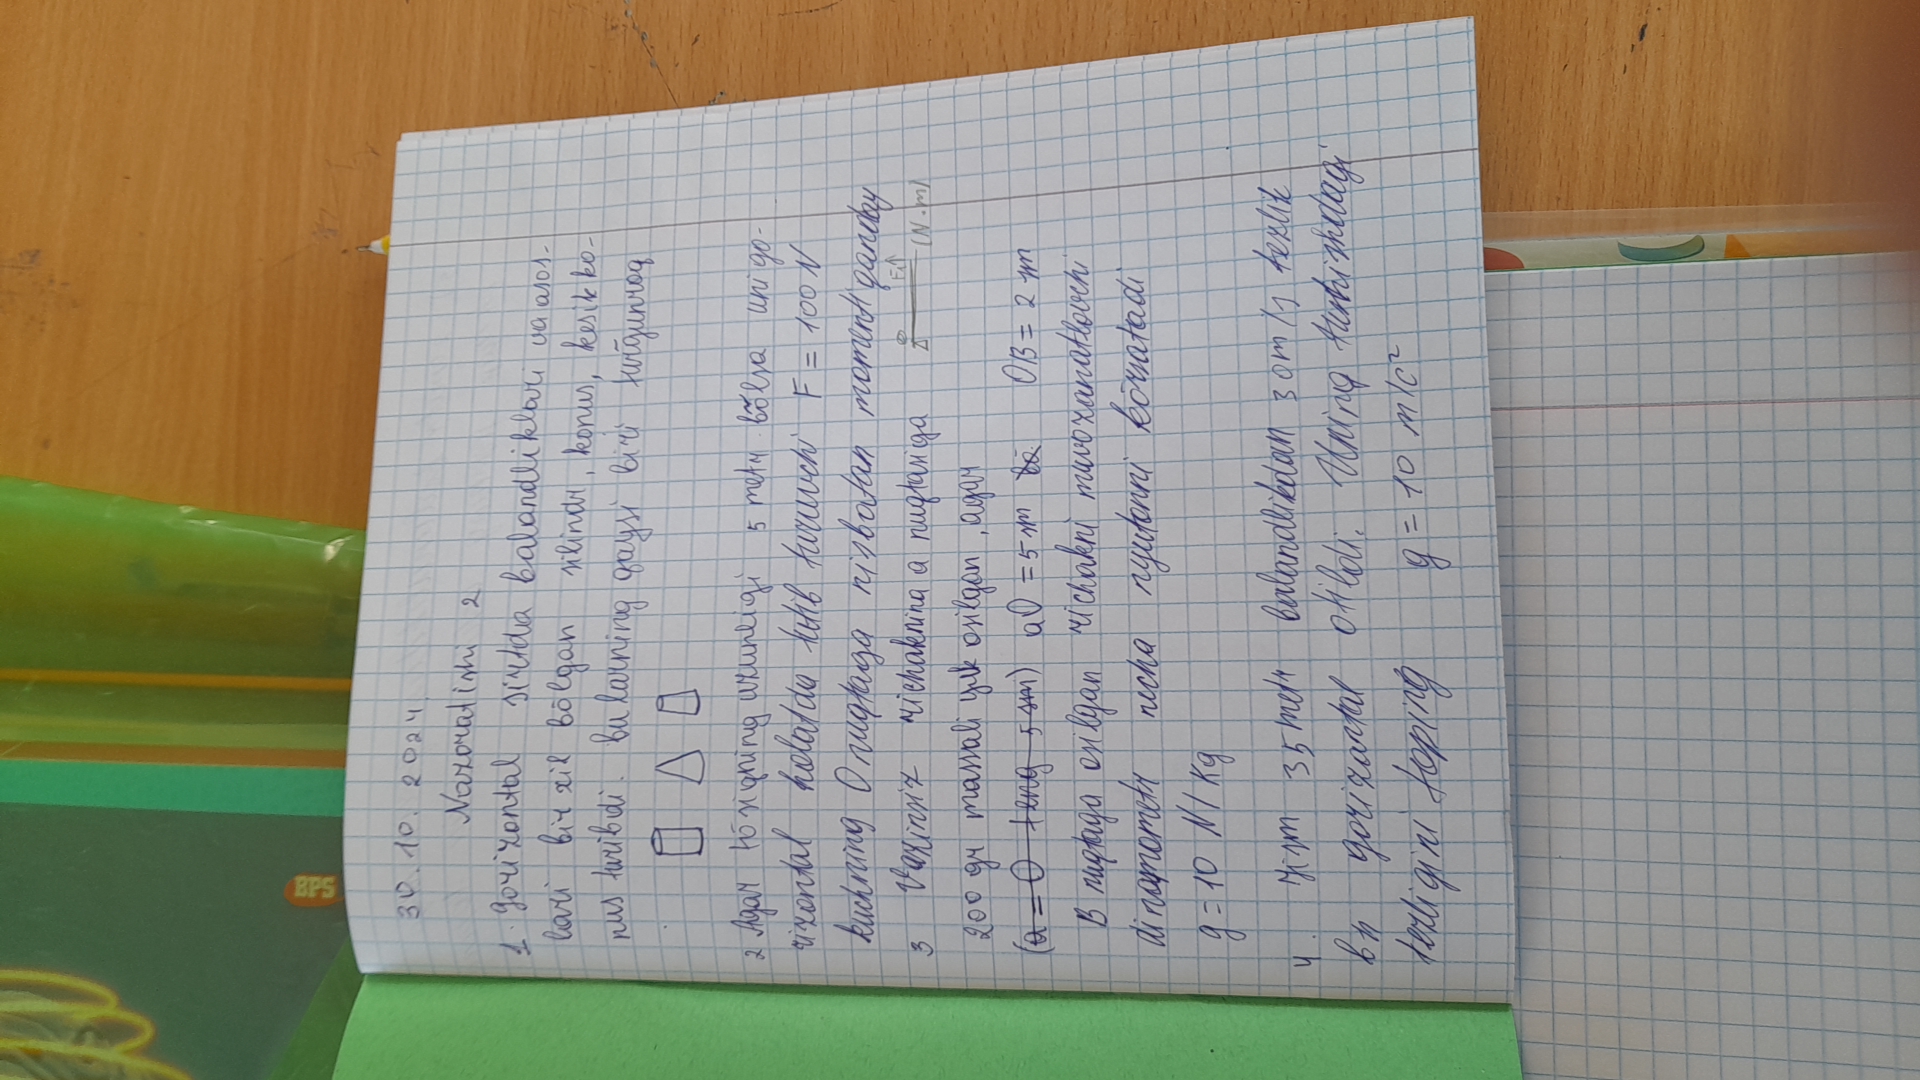 BPS
30.10.2024.
Nazorat ishi 2
1. Gorizontal sirtda balandliklari va asos-
lari bir xil bōlgan silindr, konus, kesik ko-
nus turibdi. Bularning qaysi biri turğunroq
2 Agar tōsiqning uzunligi 5 metr bōlsa uni go-
rizontal holatda tutib turuvchi F = 100 N
kuchning O nuqtaga nisbatan momenti qanday
F↑
(N·m)
3 Vaznsiz richakning a nuqtasiga
200 gr massali yuk osilgan, agar
(a = O teng 5 sm) aO = 5 sm bō OB = 2 sm
B nuqtaga osilgan richakni muvozanatlovchi
dinamometr necha nyutonni kōrsatadi
g = 10 N/kg
4. Jism 35 metr balandlikdan 30 m/s tezlik
bn gorizontal otildi. Uning tushishdagi
tezligini toping g = 10 m/c²